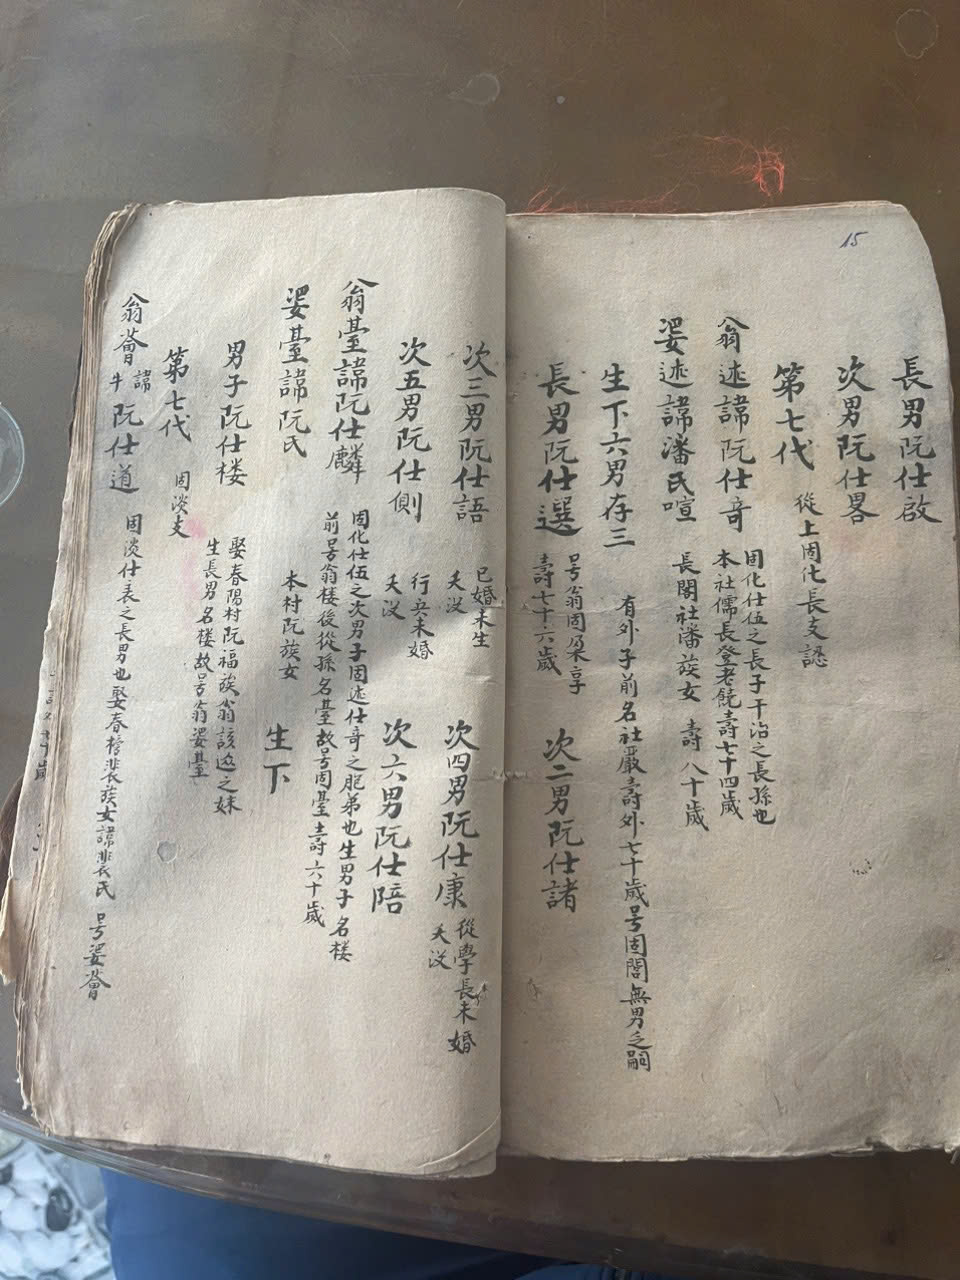 15
長男阮仕啟
次男阮仕畧
第七代 從上固化長支認
翁述諱阮仕竒 固化仕伍之長子干治之長孫也
本社儒長登老饒壽七十四歲
婆述諱潘氏喧 長閣社潘族女 壽八十歲
生下六男存三 有外子前名社嚴壽外七十歲号固閤無男之嗣
長男阮仕選 号翁固朶享
壽七十六歲
次二男阮仕諸
次三男阮仕語 已婚未生
夭没
次四男阮仕康 從學長未婚
夭没
次五男阮仕側 行兵未婚
夭没
次六男阮仕陪
翁臺諱阮仕麟 固化仕伍之次男子固述仕竒之胞弟也生男子名楼
前号翁楼後從孫名臺故号固臺壽六十歲
婆臺諱阮氏 本村阮族女
生下
男子阮仕楼 娶春陽村阮福族翁該迎之妹
生長男名楼故号翁婆臺
第七代 固淡支
翁薈諱牛阮仕道 固淡仕表之長男也娶春檜裴族女諱裴氏 号婆薈